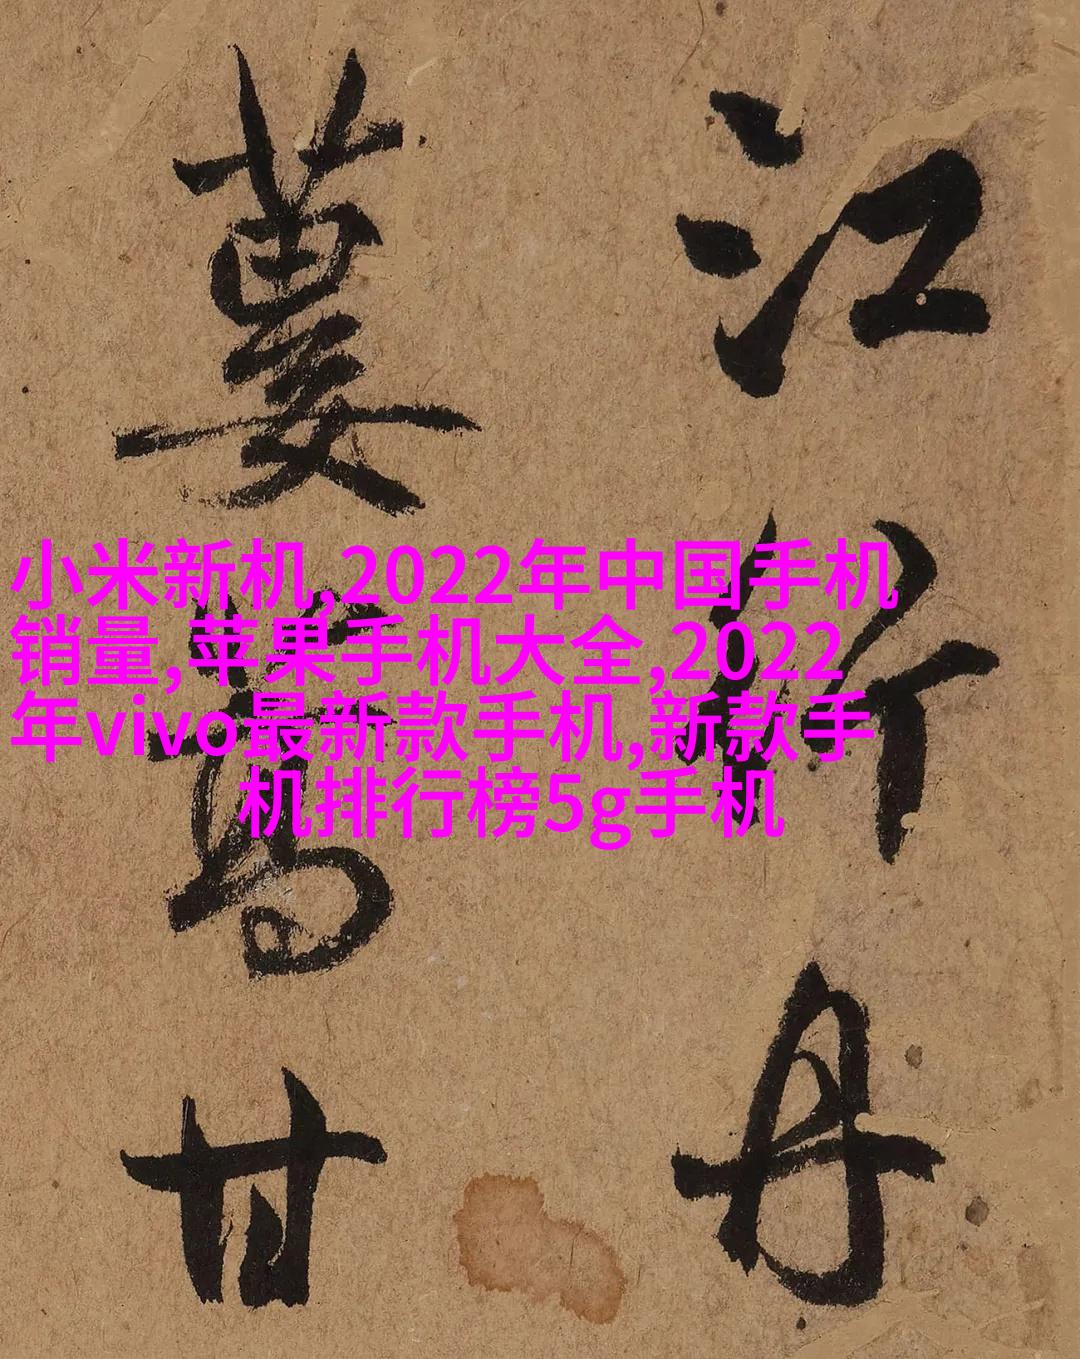 江丹
蔞蒿甘
小米新机,2022年中国手机
销量,苹果手机大全,2022
年vivo最新款手机,新款手
机排行榜5g手机